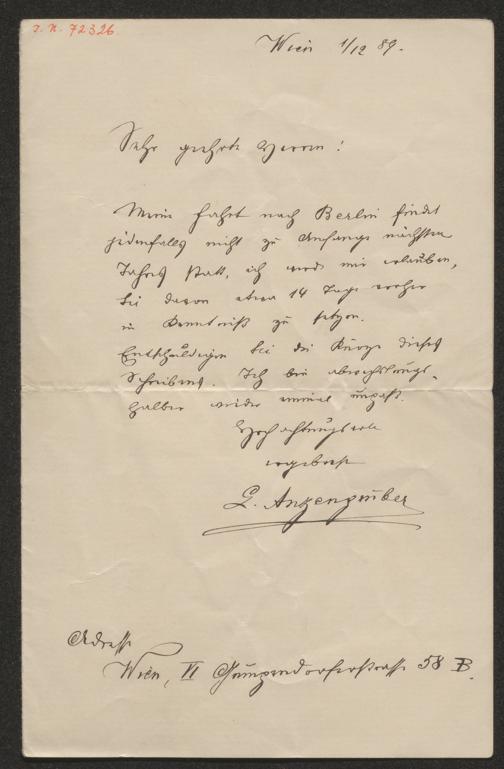 I. N. 72326
Wien 1/12 89.
Sehr geehrte Herren!
Meine Fahrt nach Berlin findet
jedenfalls nicht zu Anfangs nächsten
Jahres statt, ich werde mir erlauben,
Sie davon etwa 14 Tage vorher
in Kenntniß zu setzen.
Entschuldigen Sie die Kürze dieses
Schreibens. Ich bin abwechslungs-
halber wieder einmal unpaß.
Hochachtungsvoll
ergebenst
L. Anzengruber
Adresse
Wien, VI Gumpendorferstrasse 58 B.